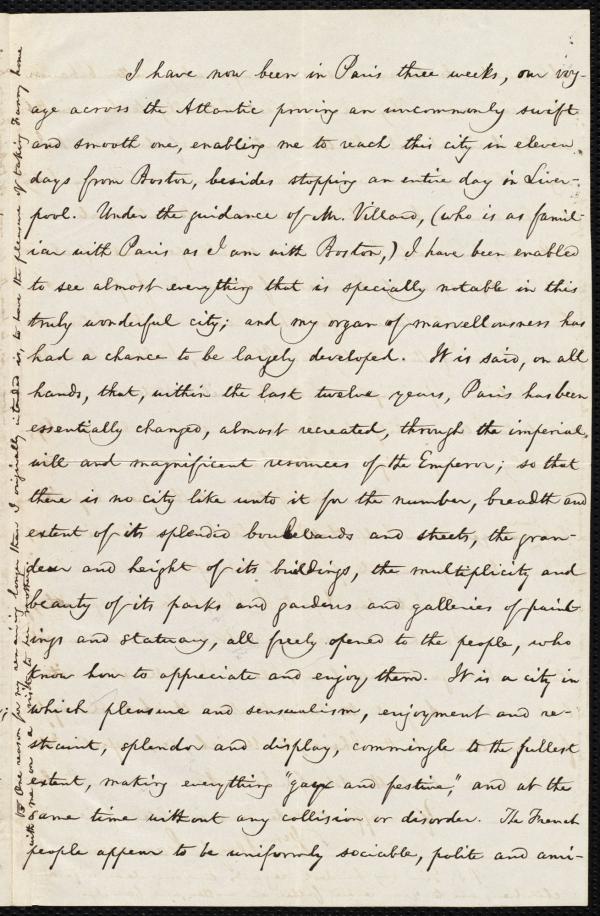 I have now been in Paris three weeks, our voy-
age across the Atlantic proving an uncommonly swift
and smooth one, enabling me to reach this city in eleven
days from Boston, besides stopping an entire day in Liver-
pool. Under the guidance of Mr. Villard, (who is as famil-
iar with Paris as I am with Boston,) I have been enabled
to see almost everything that is specially notable in this
truly wonderful city; and my organ of marvellousness has
had a chance to be largely developed. It is said, on all
hands, that, within the last twelve years, Paris has been
essentially changed, almost recreated, through the imperial
will and magnificent resources of the Emperor; so that
there is no city like unto it for the number, breadth and
extent of its splendid boulevards and streets, the gran-
deur and height of its buildings, the multiplicity and
beauty of its parks and gardens and galleries of paint-
ings and statuary, all freely opened to the people, who
know how to appreciate and enjoy them. It is a city in
which pleasure and sensualism, enjoyment and re-
straint, splendor and display, commingle to the fullest
extent, making everything "gay and festive," and at the
same time without any collision or disorder. The French
people appear to be uniformly sociable, polite and ami-
One reason for my remaining longer than I originally intended is, to have the pleasure of taking Fanny home
with me on a visit to her mother.